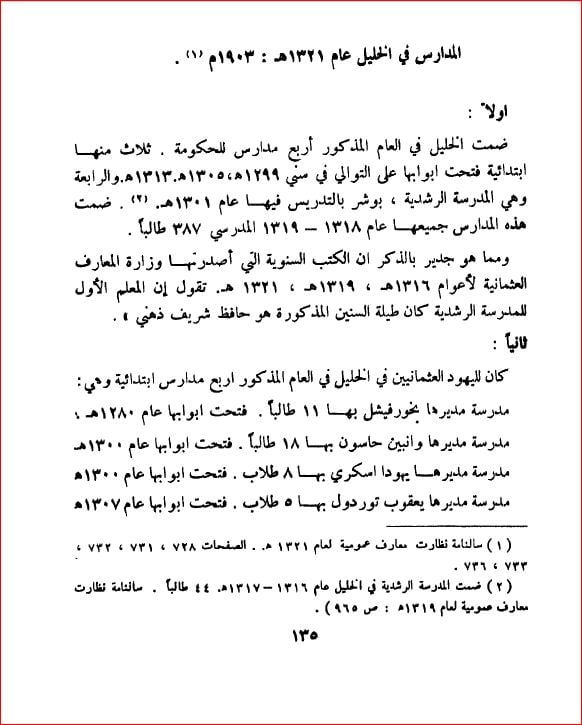 المدارس في الخليل عام ١٣٢١هـ : ١٩٠٣م (١) .
اولاً :
ضمت الخليل في العام المذكور أربع مدارس للحكومة . ثلاث منهـا
ابتدائية فتحت ابوابها على التوالي في سني ١٢٩٩ه،١٣٠٥ه.١٣١٣ه.والرابعة
وهي المدرسة الرشدية ، بوشر بالتدريس فيهـا عام ١٣٠١هـ. (٢) . ضمت
هذه المدارس جميعهـا عام ١٣١٨ – ١٣١٩ المدرسي ٣٨٧ طالباً .
ومما هو جدير بالذكر ان الكتب السنوية التي أصدرتهـا وزارة المعارف
العثمانية لأعوام ١٣١٦هـ ، ١٣١٩هـ ، ١٣٢١ هـ. تقول إن المعلم الأول
للمدرسة الرشدية كان طيلة السنين المذكورة هو حافظ شريف ذهني » .
ثانياً :
كان لليهود العثمانيين في الخليل في العام المذكور اربع مدارس ابتدائية وهي:
مدرسة مديرها بخورفيشل بهـا ١١ طالباً . فتحت ابوابها عام ١٢٨٠هـ ،
مدرسة مديرها وانبين حاسون بهـا ١٨ طالباً . فتحت ابوابها عام ١٣٠٠هـ
مدرسة مديرهـا يهودا اسكري بهـا ٨ طلاب . فتحت ابوابها عام ١٣٠٠ه
مدرسة مديرها يعقوب توردول بهـا ٥ طلاب . فتحت ابوابها عام ١٣٠٧ه
( ١ ) سالنامة نظارت معارف عمومية لعام ١٣٢١ هـ. . الصفحات ٧٢٨ ، ٧٣١ ، ٧٣٢ ،
٧٣٣ ، ٧٣٦ .
( ٢ ) ضمت المدرسة الرشدية في الخليل عام ١٣١٦ –١٣١٧هـ. ٤٤ طالباً . سالنامة نظارت
معارف عمومية لعام ١٣١٩ه : ص ٩٦٥ ) .
١٣٥